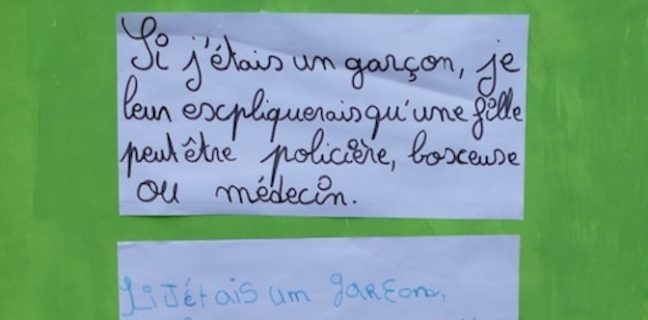 Si j'étais un garçon, je
leur expliquerais qu'une fille
peut être policière, boxeuse
ou médecin.
Si Jétais um garçon,